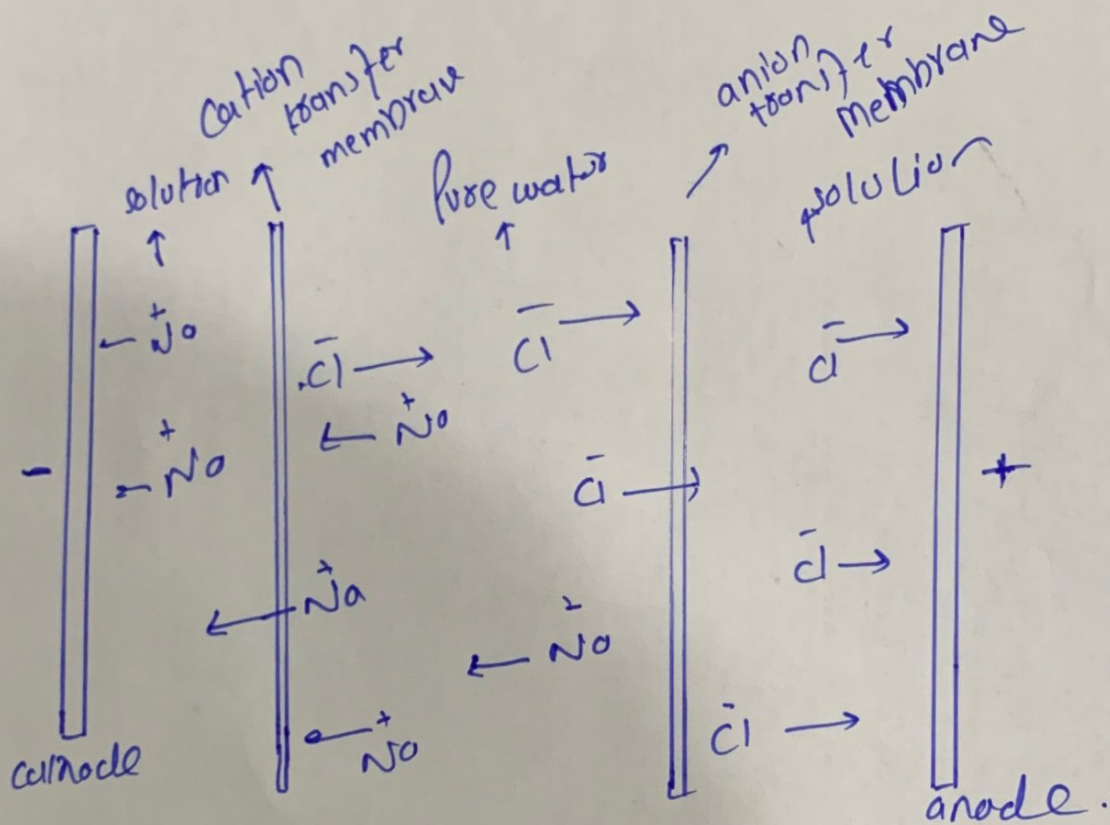 cation
transfer
membrane
anion
transfer
membrane
solution
Pure water
solution
+
Na
-
Cl
-
Cl
-
Cl
+
Na
+
Na
-
-
Cl
+
-
Cl
+
Na
Na
+
Na
-
Cl
cathode
anode.